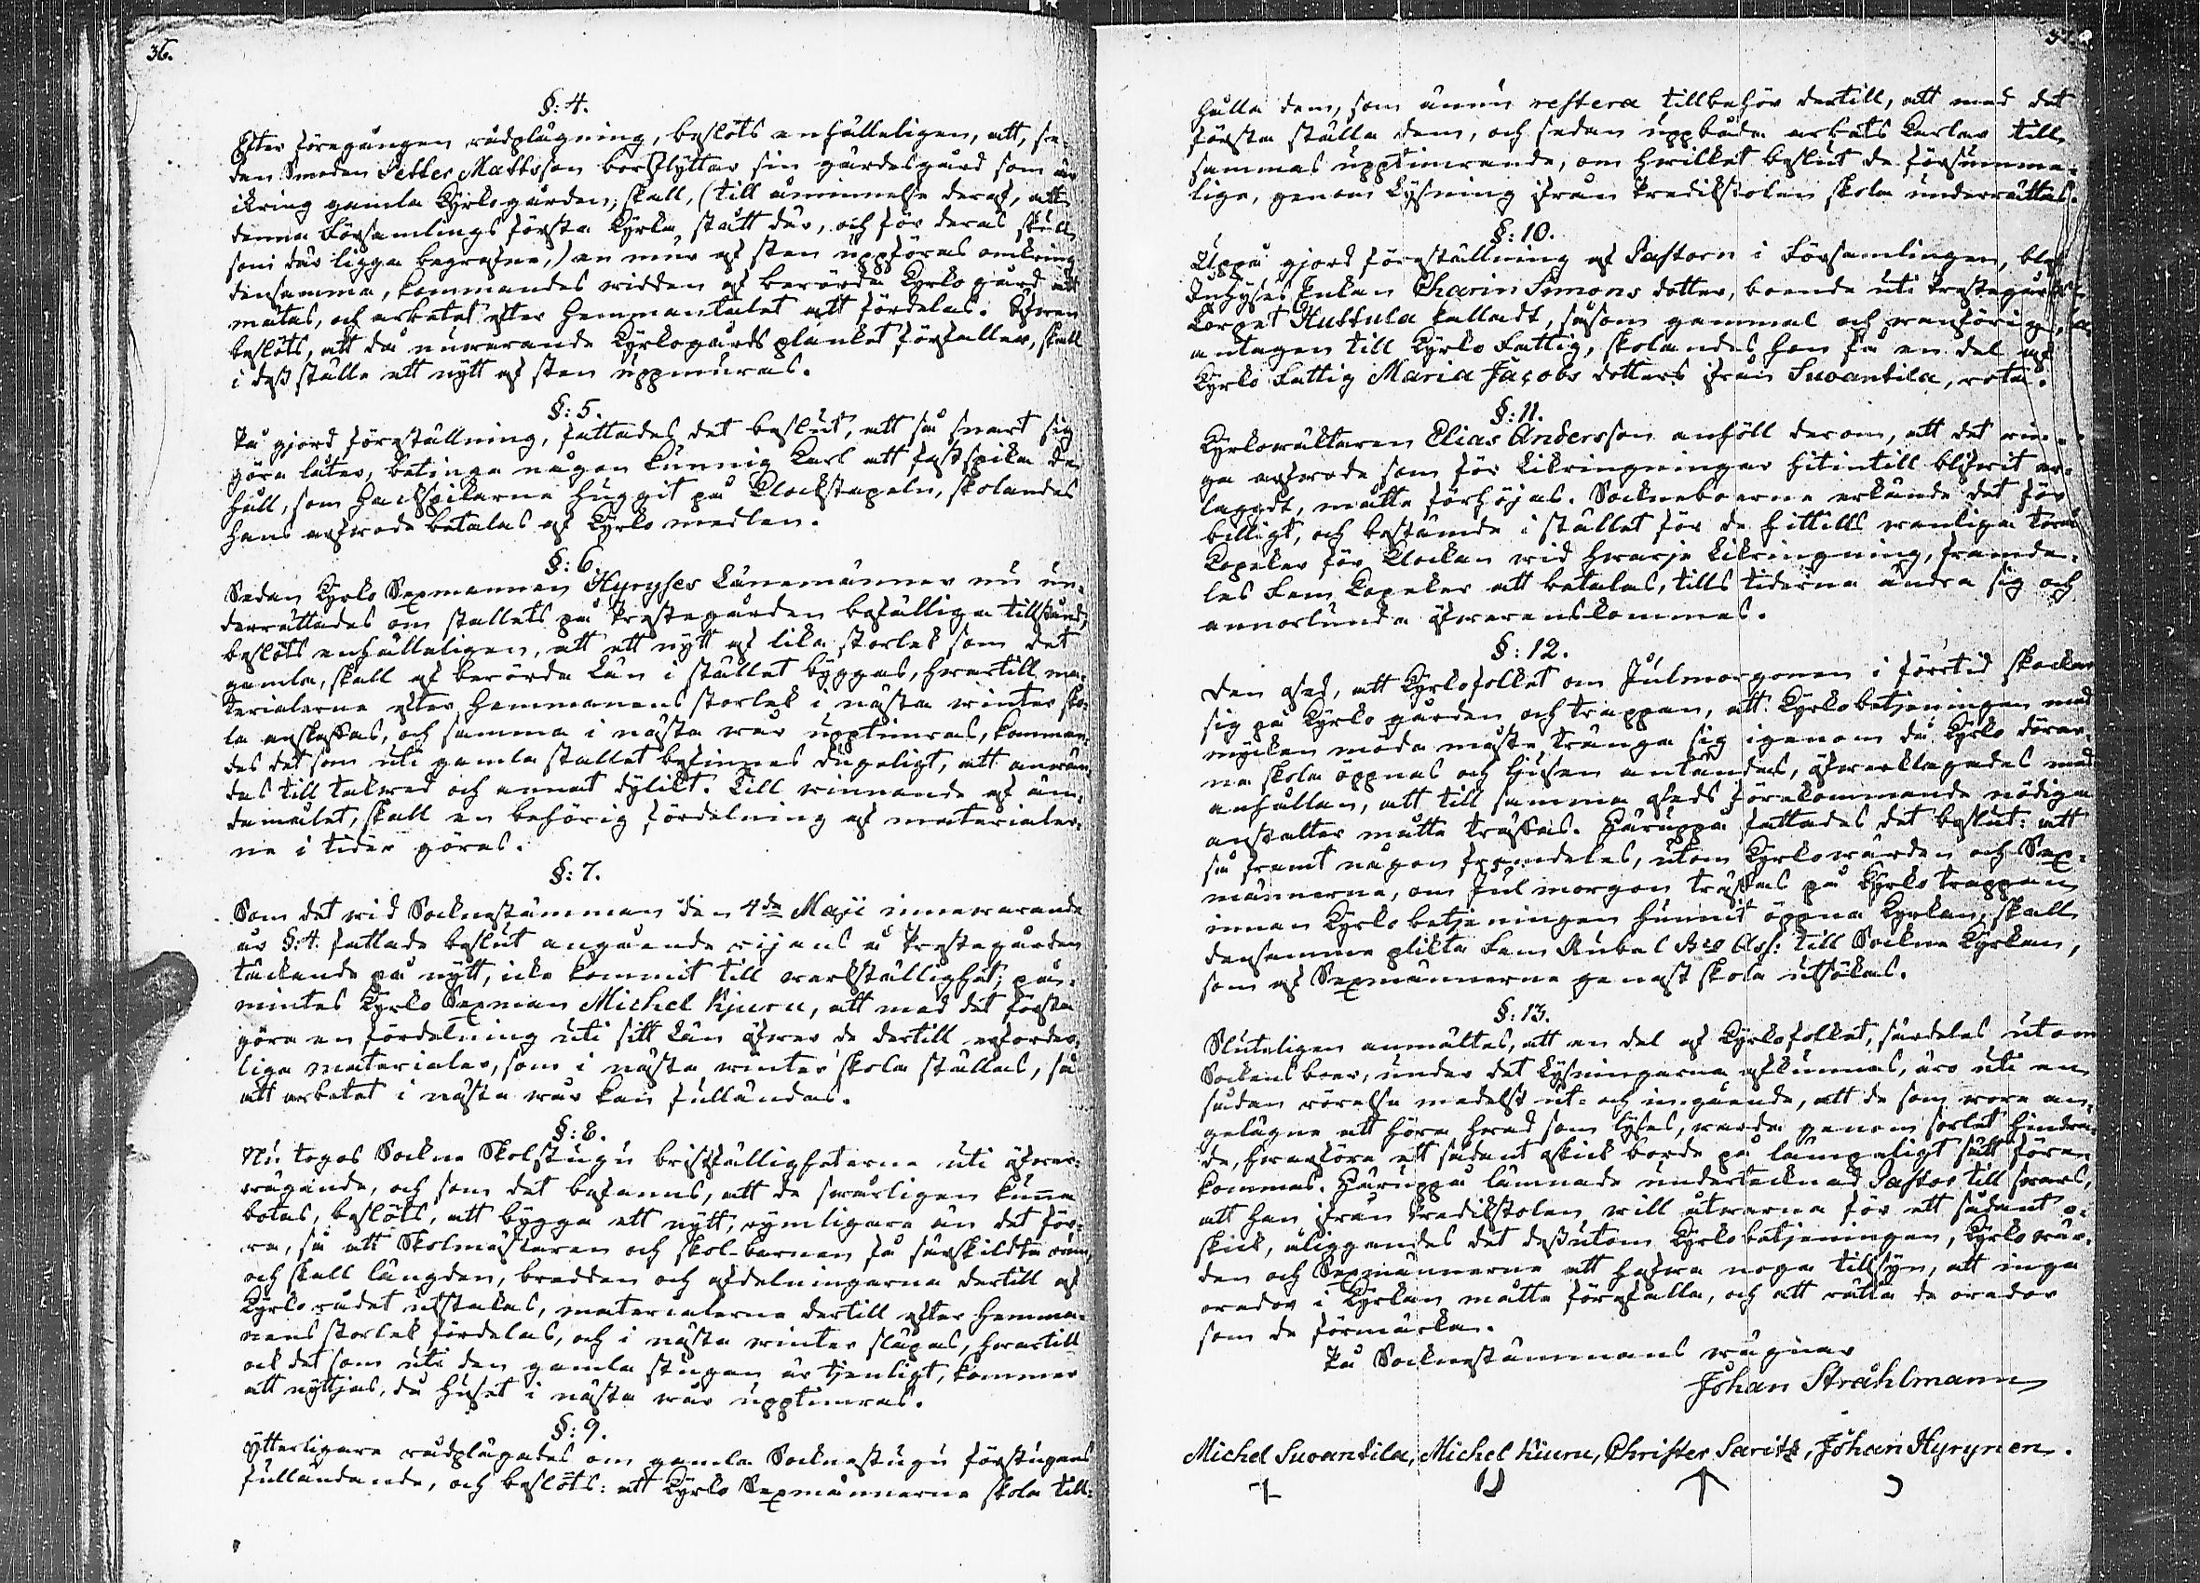 36.
§: 4.
Efter föregången rådplägning, beslöts enhälleligen, att, se-
dan Smeden Petter Mattsson bortflyttar sin gärdesgård som är
ikring gamla Kyrkogården, skall, (till åminnelse deraf, att
denna Församlings första Kyrka stått där, och för deras skull
som där ligga begrafne,) en mur af sten uppföras omkring
densamma, kommandes widden af berörda Kyrkogård att
mätas, och arbetet efter Hemmantalet att fördelas. Äfwen
beslöts, att då nuwarande Kyrkogårds planket förfaller, skall
i dess ställe ett nytt af sten uppmuras.
§: 5.
På gjord föreställning, fattades det beslut, att så snart sig
göra låter, betinga någon kunnig Karl att fastspika de
håll, som Hackspikarna huggit på Klockstapeln, skolandes
hans arfwode betalas af Kyrko medlen.
§: 6.
Sedan Kyrko Sexmannen Hyryses Länemänner nu un-
derrättades om stallets på Prestegården bofälliga tillstånd,
beslöts enhälleligen, att ett nytt af lika storlek som det
gamla, skall af berörda Län i stället byggas, hwartill ma-
terialerne efter Hemmanens storlek i nästa winter sko-
la anskaffas, och samma i nästa wår upptimras, komman-
des det som uti gamla stallet befinnes dugeligt, att anwän-
das till takwed och annat dylikt. Till winnande af än-
damålet, skall en behörig fördelning af materialer-
ne i tider göras.
§: 7.
Som det wid Sockenstämman den 4de Maji innewarande
år §: 4. fattade beslut angående rijans å Prestegården
täckande på nytt, icke kommit till werkställighet, på-
mintes Kyrko Sexman Michel Kjuru, att med det första
göra en fördelning uti sitt Län öfwer de dertill erforder-
liga materialer, som i nästa winter skola ställas, så
att arbetet i nästa wår kan fulländas.
§: 8.
Nu togos Sockne Skolstugu bristfälligheterne uti öfwer-
wägande, och som det befanns, att de swårligen kunna
botas, beslöts, att bygga ett nytt, rymligare än det för-
ra, så att Skolmästaren och skol-barnen få särskildta rum,
och skall längden, bredden och afdelningarna dertill af
Kyrkorådet utstakas, materialerne dertill efter Hemma-
nens storlek fördelas, och i nästa winter släpas, hwartill
ock det som uti den gamla stugan är tjenligt, kommer
att nyttjas, då huset i nästa wår upptimras.
§: 9.
Ytterligare rådplägades om gamla Socknestugu förstugans
fulländande, och beslöts: att Kyrko Sexmännerne skola till-
hålla dem, som ännu restera tillbehör dertill, att med det
första ställa dem, och sedan uppbåda arbets Karlar till
sammas upptimrande, om hwilket beslut de försumme-
lige, genom Lysning ifrån Predikstolen skola underrättas.
§: 10.
Uppå gjord föreställning af Pastorn i Församlingen, blef
Inhyses Enkan Charin Simons dotter, boende uti Prestegårds
Torpet Huttula kalladt, såsom gammal och wanförig,
antagen till Kyrko Fattig, skolandes hon få en del af
Kyrko Fattig Maria Jacobs dotters ifrån Suvantila, rota.
§: 11.
Kyrkowäktaren Elias Andersson anhöll derom, att det rin-
ga arfwode som för Likringningar hitintill blifwit er-
lagdt, måtte förhöjas. Sockneboerne erkände det för
billigt, och bestämde i stället för de hittills wanliga twå
Kopeker för Klockan wid hwarje Likringning, framde-
les Fem Kopeker att betalas, tills tiderna ändra sig och
annorlunda öfwerenskommes.
§: 12.
Den osed, att Kyrkofolket om Julmorgonen i förtid skockar
sig på Kyrkogården och trappan, att Kyrkobetjeningen med
mycken möda måste tränga sig igenom då Kyrko dörar-
na skola öppnas och ljusen antändas, öfwerklagades med
anhållan, att till samma oseds förekommande nödiga
anstalter måtte träffas. Häruppå fattades det beslut: att
så framt någon framdeles, utom Kyrkowärden och Sex-
männerne, om Jul morgon träffas på Kyrko trappan
innan Kyrko betjeningen hunnit öppna Kyrkan, skall
densamme plikta Fem Rubel Bco Ass: till Sockne Kyrkan,
som af Sexmännerne genast skola utsökas.
§: 13.
Sluteligen anmältes, att en del af Kyrkofolket, särdeles utom
Sockens boer, under det Lysningarna afkunnas, äro uti en
sådan rörelse medelst ut- och ingående, att de som wore an-
gelägne att höra hwad som lyses, warda genom sorlet hindra-
de, hwarföre ett sådant oskick borde på lämpeligt sätt före-
kommas. Häruppå lämnade undertecknad Pastor till swars,
att han ifrån Predikstolen will åtwarna för ett sådant o-
skick, åliggandes det dessutom Kyrko betjeningen, Kyrko wär-
den och Sexmännerne att hafwa noga tillsyn, att inga
oredor i Kyrkan måtte förefalla, och att rätta de oredor
som de förmärka.
På Sockenstämmans wägnar
Johan Stråhlmann
Michel Suvantila, Michel Kiuru, Christer Saritz, Johan Hyrynen.